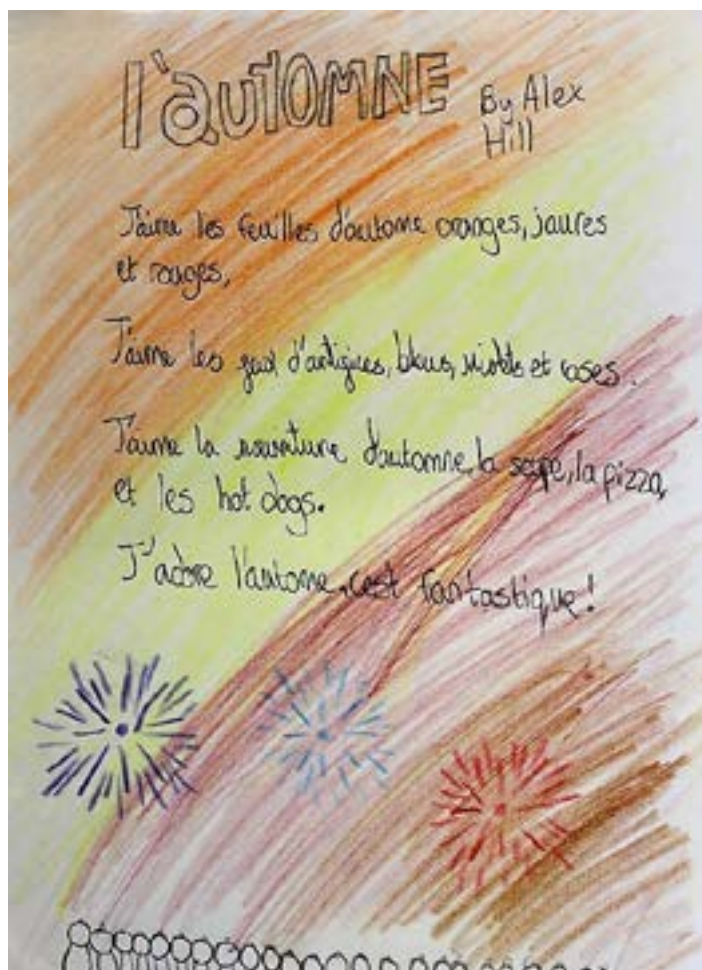 l'autOMNE
By Alex
Hill
J'aime les feuilles d'automne oranges, jaunes
et rouges,
J'aime les d'artifices, bleus, violets et roses.
J'aime la nouriture d'automne, la soupe, la pizza,
et les hot dogs.
J'adore l'automne, c'est fantastique!